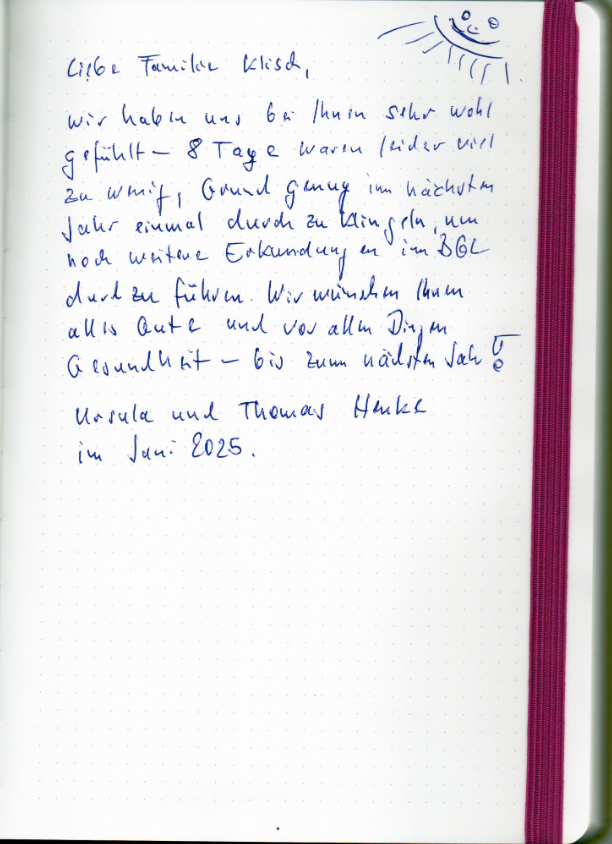 Liebe Familie Klisch,
wir haben uns bei Ihnen sehr wohl
gefühlt – 8 Tage waren leider viel
zu wenig, Grund genug im nächsten
Jahr einmal durch zu klingeln, um
noch weitere Erkundungen im BGL
durch zu führen. Wir wünschen Ihnen
alles Gute und vor allen Dingen
Gesundheit – bis zum nächsten Jahr!
Ursula und Thomas Henke
im Juni 2025.